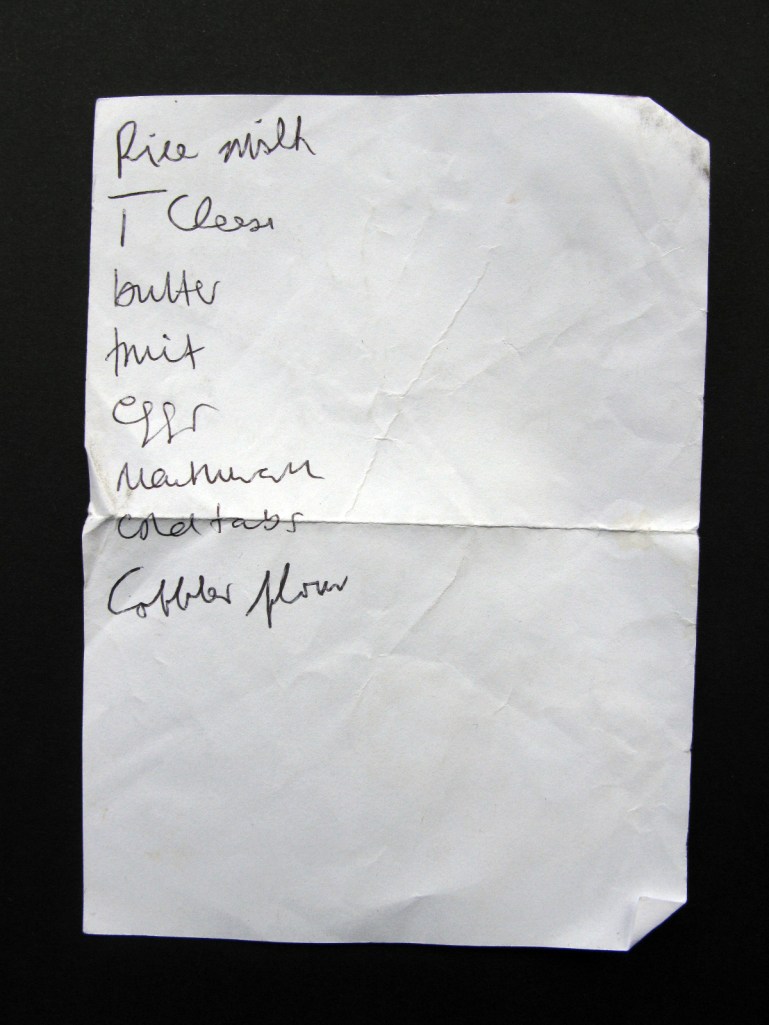 Rice milk
T Cheese
butter
fruit
eggs
Mouthwash
cold tabs
Cobbler flour